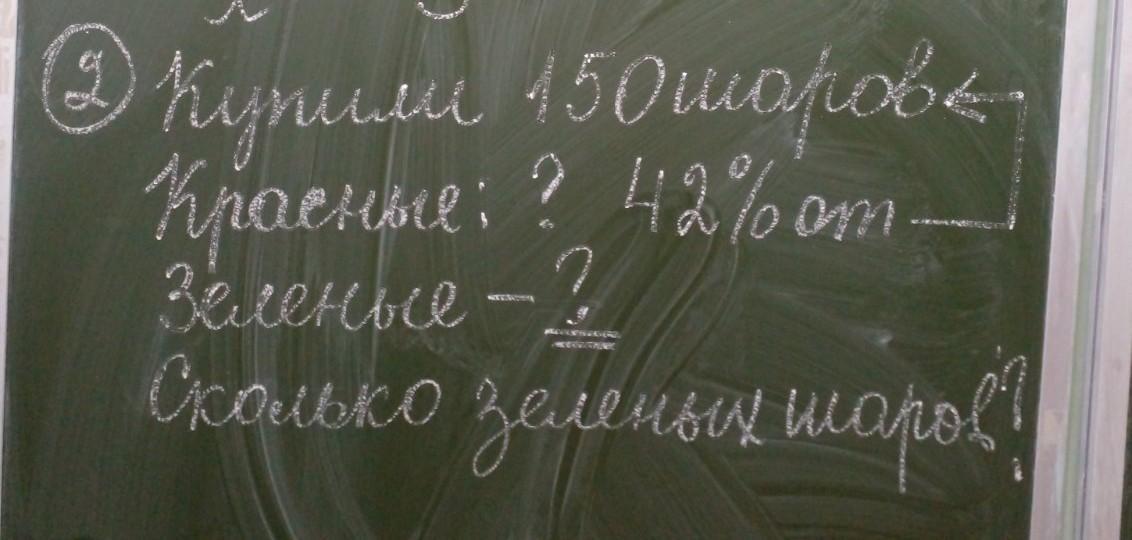 ② Купили 150 шаров
Красные: ? 42% от
Зеленые - ?
Сколько зеленых шаров?